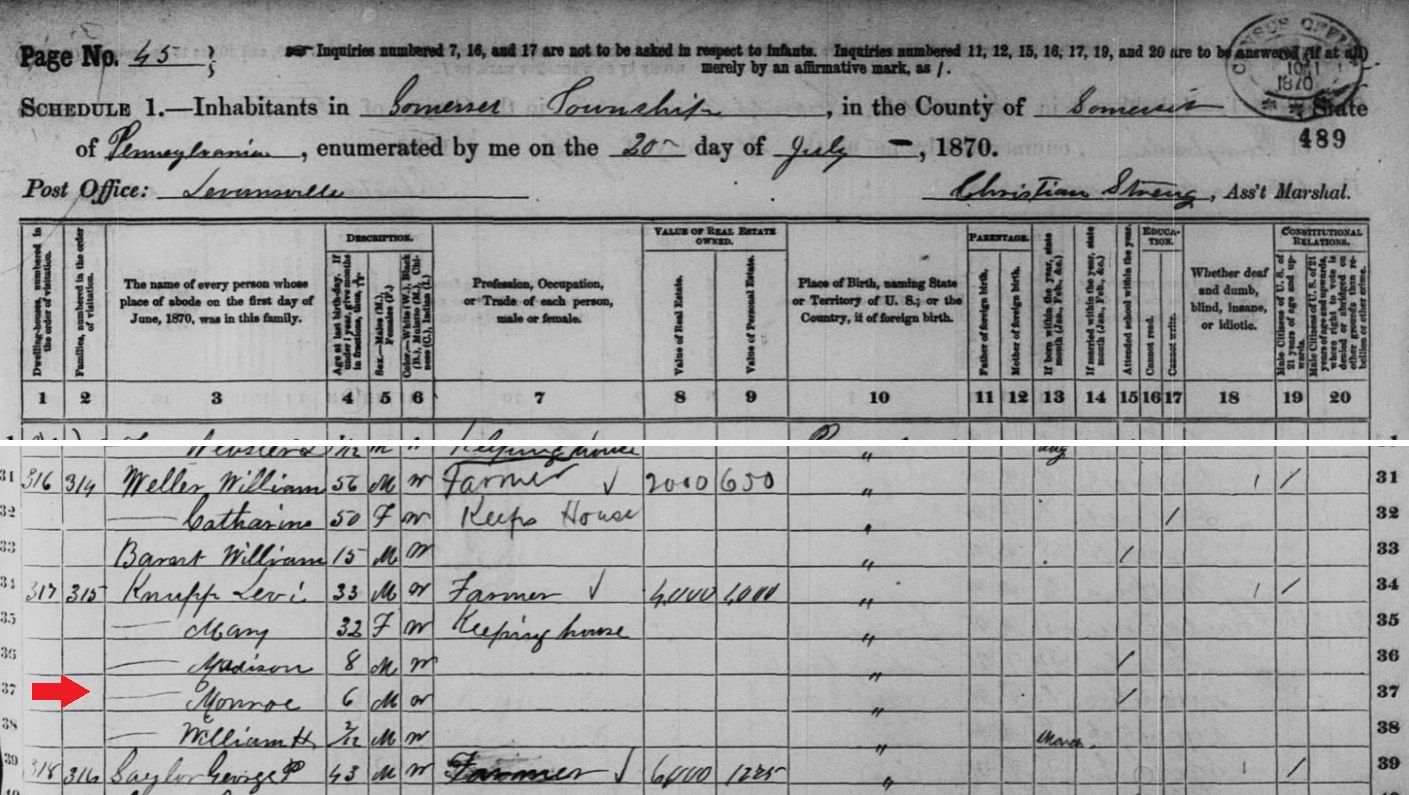 Page No. 45
Inquiries numbered 7, 16, and 17 are not to be asked in respect to infants. Inquiries numbered 11, 12, 15, 16, 17, 19, and 20 are to be answered (if at all)
merely by an affirmative mark, as /.
CENSUS OFFICE
1870
SCHEDULE 1.—Inhabitants in Somerset Township, in the County of Somerset, State
of Pennsylvania, enumerated by me on the 20 day of July, 1870.
489
Post Office: Lavansville
Christian Streng, Ass't Marshal.
Dwelling-houses, numbered in the order of visitation.
Families, numbered in the order of visitation.
The name of every person whose place of abode on the first day of June, 1870, was in this family.
DESCRIPTION.
Age at last birth-day. If under 1 year, give months in fractions, thus, 3/12
Sex.—Males (M.), Females (F.)
Color.—White (W.), Black (B.), Mulatto (M.), Chinese (C.), Indian (I.)
Profession, Occupation, or Trade of each person, male or female.
VALUE OF REAL ESTATE OWNED.
Value of Real Estate.
Value of Personal Estate.
Place of Birth, naming State or Territory of U. S.; or the Country, if of foreign birth.
PARENTAGE.
Father of foreign birth.
Mother of foreign birth.
If born within the year, state month (Jan., Feb., &c.)
If married within the year, state month (Jan., Feb., &c.)
Attended school within the year.
EDUCATION.
Cannot read.
Cannot write.
Whether deaf and dumb, blind, insane, or idiotic.
CONSTITUTIONAL RELATIONS.
Male Citizens of U. S. of 21 years of age and upwards.
Male Citizens of U. S. of 21 years of age and upwards, where right to vote is denied or abridged on other grounds than rebellion or other crime.
1 2 3 4 5 6 7 8 9 10 11 12 13 14 15 16 17 18 19 20
/12 M Keeping house " Aug
31 316 314 Weller William 56 M W Farmer ✓ 2000 650 " / 31
32 — Catharine 50 F W Keeps House " / 32
33 William 15 M W " / 33
34 317 315 Knupp Levi 33 M W Farmer ✓ 4,000 1,000 " / 34
35 — Mary 32 F W Keeping house " 35
36 — Madison 8 M W " / 36
37 — Monroe 6 M W " / 37
38 — William H 2/12 M W " March 38
39 318 316 Saylor George P 43 M W Farmer ✓ 6,000 1225 " / 39